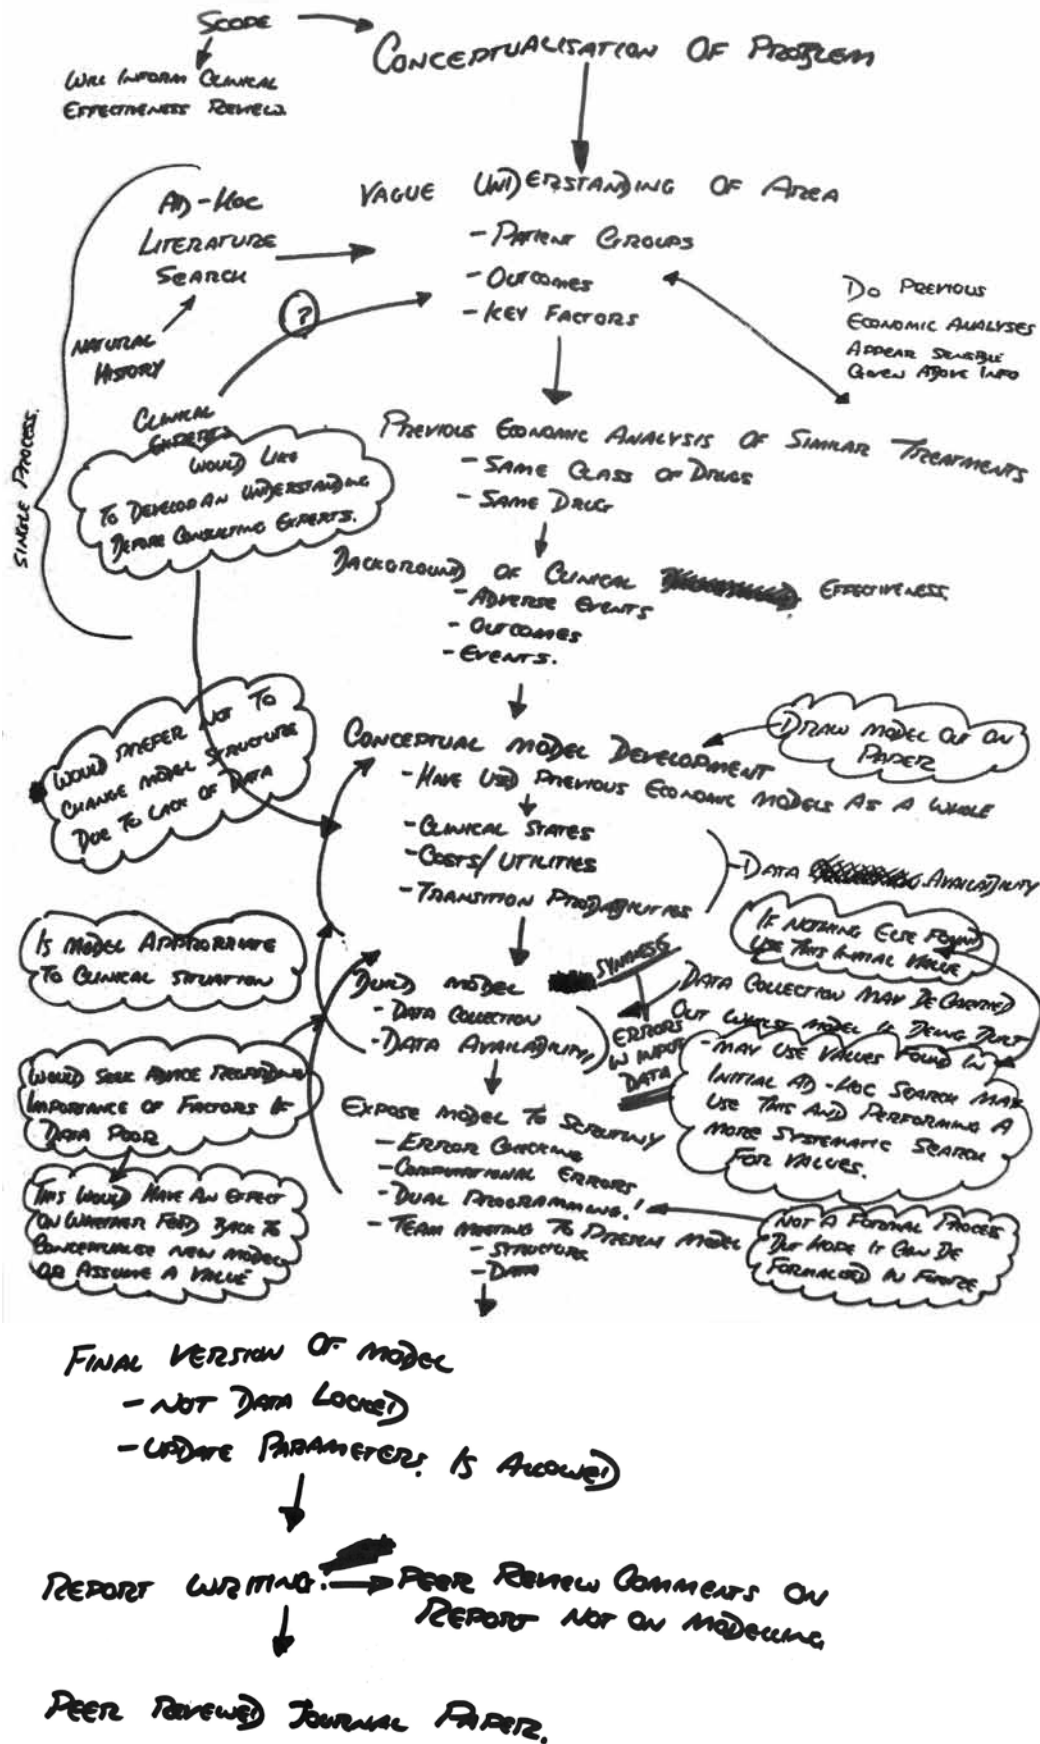 SCOPE
CONCEPTUALISATION OF PROBLEM
WILL INFORM CLINICAL
EFFECTIVENESS REVIEW.
AD-HOC
LITERATURE
SEARCH
NATURAL
HISTORY
SINGLE PROCESS.
VAGUE UNDERSTANDING OF AREA
- PATIENT GROUPS
- OUTCOMES
- KEY FACTORS
?
DO PREVIOUS
ECONOMIC ANALYSES
APPEAR SENSIBLE
GIVEN ABOVE INFO
CLINICAL
EXPERTS
WOULD LIKE
TO DEVELOP AN UNDERSTANDING
BEFORE CONSULTING EXPERTS.
PREVIOUS ECONOMIC ANALYSIS OF SIMILAR TREATMENTS
- SAME CLASS OF DRUGS
- SAME DRUG
BACKGROUND OF CLINICAL EFFECTIVENESS.
- ADVERSE EVENTS
- OUTCOMES
- EVENTS.
WOULD PREFER NOT TO
CHANGE MODEL STRUCTURE
DUE TO LACK OF DATA
CONCEPTUAL MODEL DEVELOPMENT
- HAVE USED PREVIOUS ECONOMIC MODELS AS A WHOLE
- CLINICAL STATES
- COSTS/UTILITIES
- TRANSITION PROBABILITIES
- DRAW MODEL OUT ON
PAPER
- DATA AVAILABILITY
IF NOTHING ELSE FOUND
USE THIS INITIAL VALUE
IS MODEL APPROPRIATE
TO CLINICAL SITUATION
BUILD MODEL
- DATA COLLECTION
- DATA AVAILABILITY
ERRORS
IN INPUT
DATA
DATA COLLECTION MAY BE CARRIED
OUT WHILST MODEL IS BEING BUILT
- MAY USE VALUES FOUND IN
INITIAL AD-HOC SEARCH MAY
USE THIS AND PERFORMING A
MORE SYSTEMATIC SEARCH
FOR VALUES.
WOULD SEEK ADVICE REGARDING
IMPORTANCE OF FACTORS IF
DATA POOR
THIS WOULD HAVE AN EFFECT
ON WHETHER FEED BACK TO
CONCEPTUALISE NEW MODEL
OR ASSUME A VALUE
EXPOSE MODEL TO SCRUTINY
- ERROR CHECKING
- COMPUTATIONAL ERRORS
- DUAL PROGRAMMING!
- TEAM MEETING TO PRESENT MODEL
- STRUCTURE
- DATA
NOT A FORMAL PROCESS
BUT HOPE IT CAN BE
FORMALISED IN FUTURE
FINAL VERSION OF MODEL
- NOT DATA LOCKED
- UPDATE PARAMETERS. IS ALLOWED
REPORT WRITING. PEER REVIEW COMMENTS ON
REPORT NOT ON MODELLING
PEER REVIEWED JOURNAL PAPER.